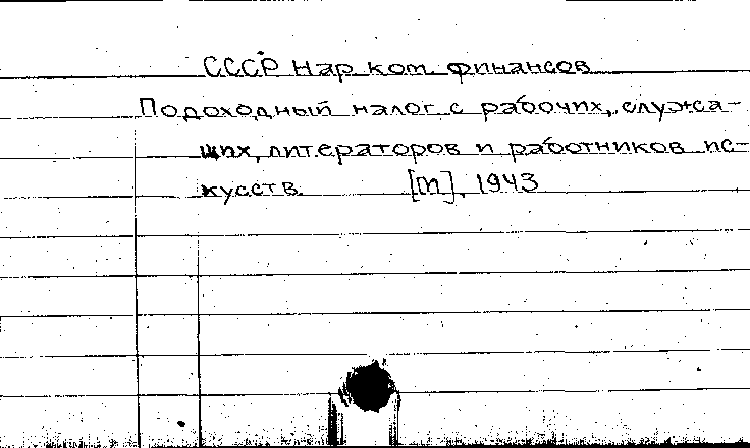 СССР Нар. ком. финансов
Подоходный налог с рабочих, служа-
щих, литераторов и работников ис-
кусств. [М], 1943